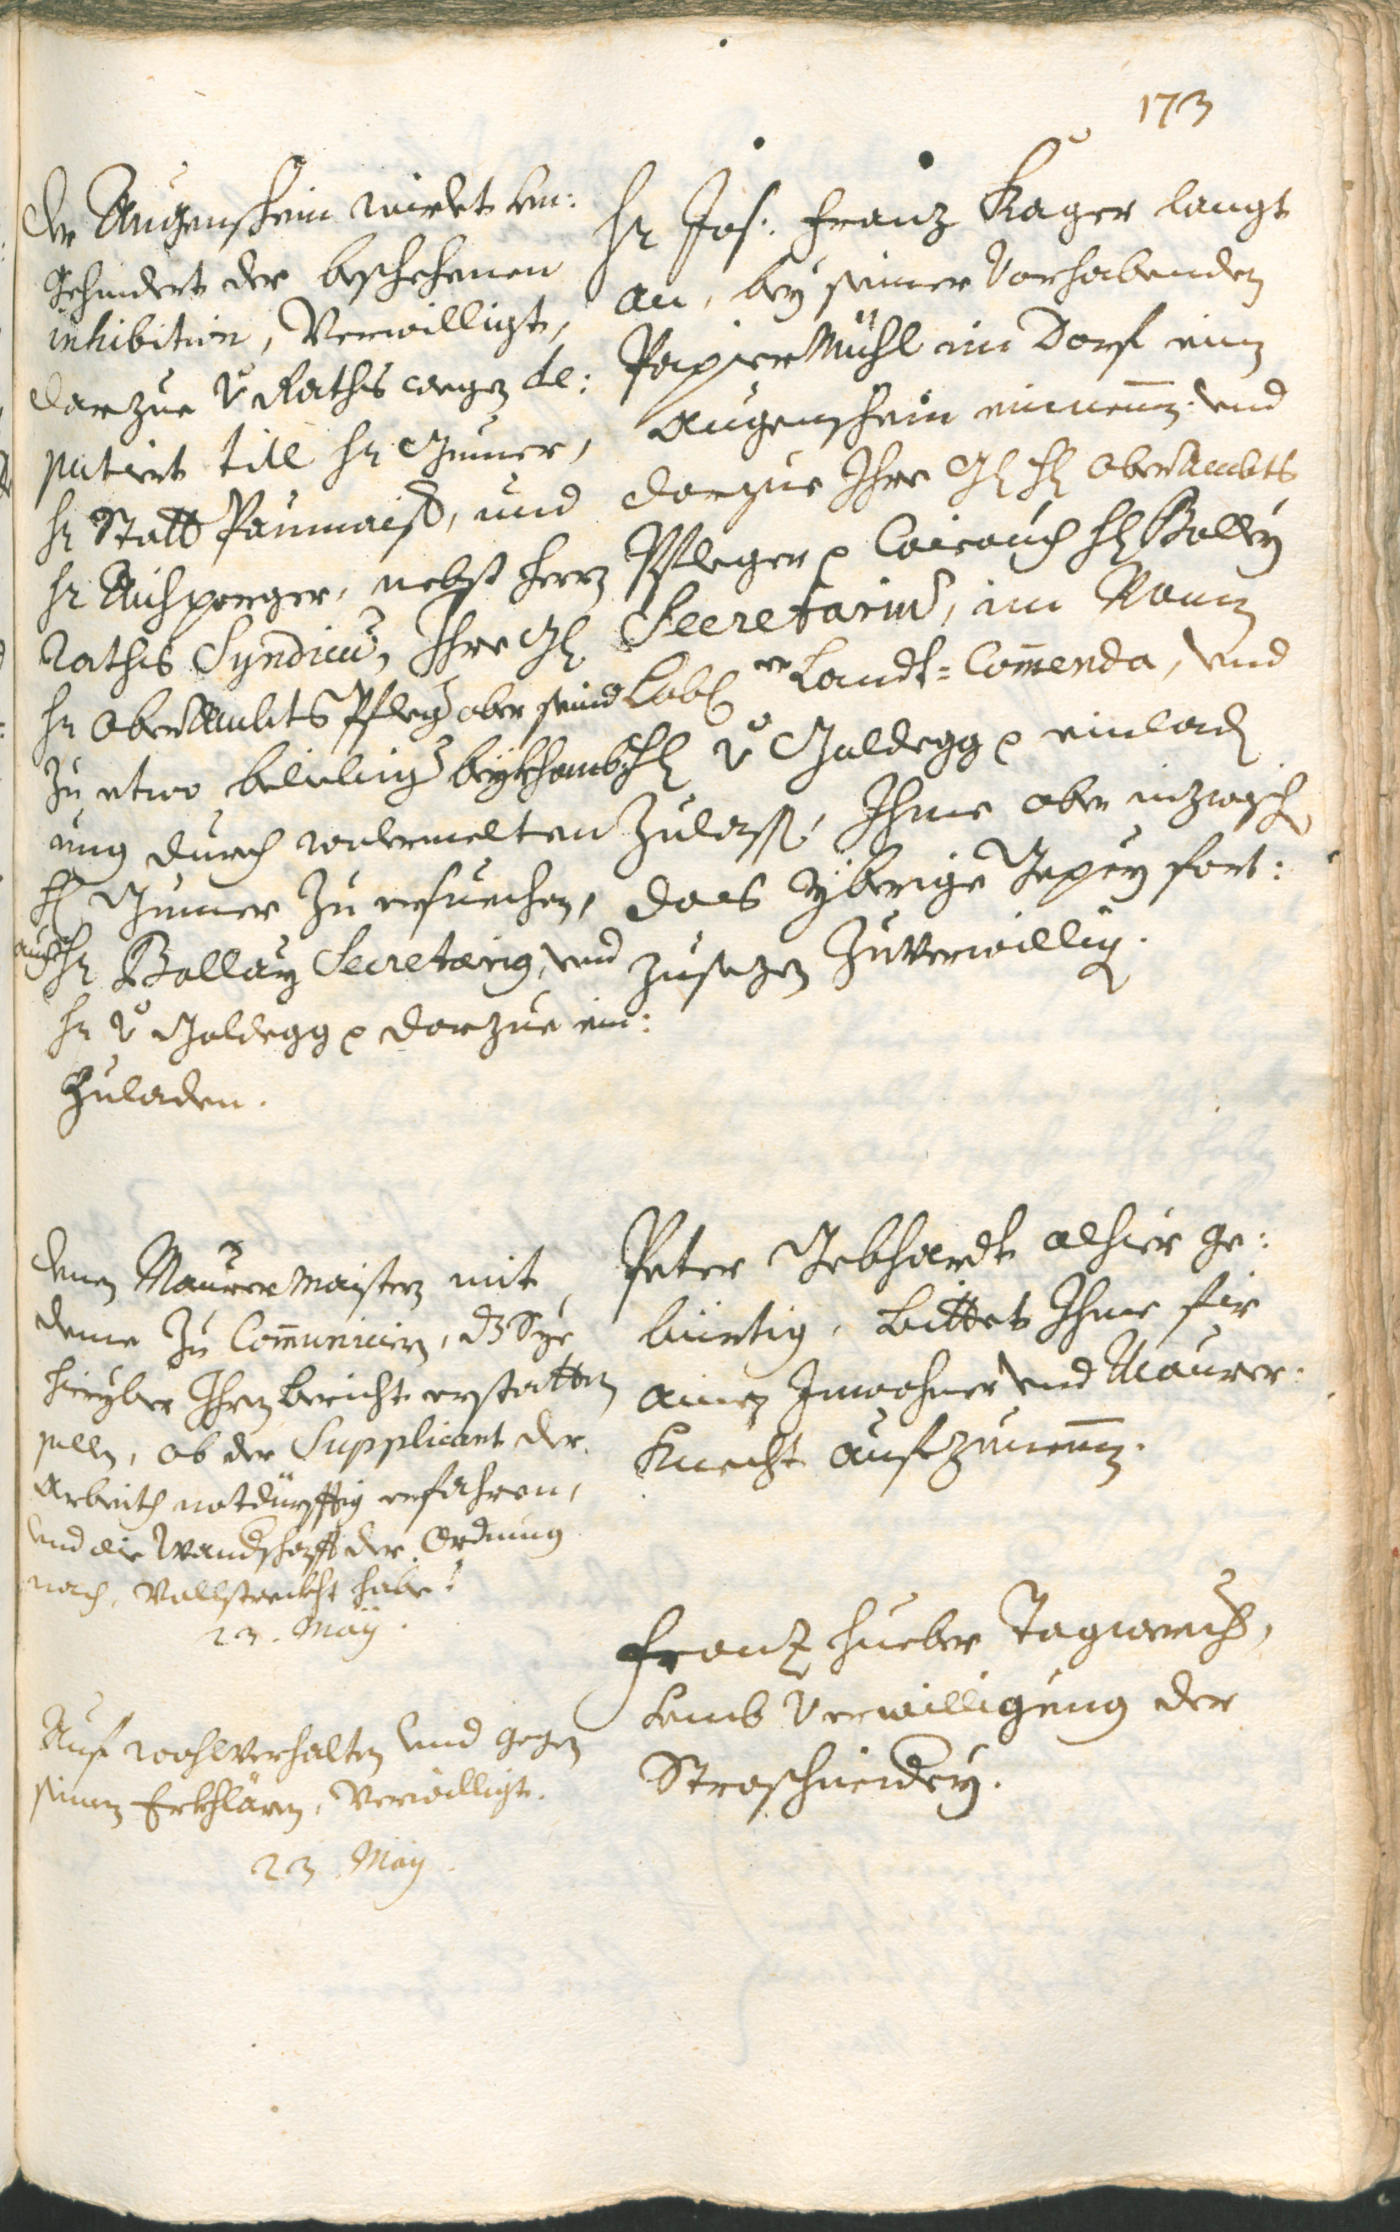 173
Der Augenschein wirdet un:
gehindert der beschehenen
inhibition, Verwilligt,
darzue v Raths wegen de:
putiert till Hr Gumer,
Hr Statt Paumaist, und
Hr Aichperger, nebst Herrn
Raths Syndicus, Ihre G
Hr OberAmbts Pfleg aber seind
zu etwo beliebig beykhomb:
ung durch wolermelten
H Gumer zu ersuechen,
auch Hr Balley Secretari, und
Hr v Goldegg darzue ein:
zuladen.
Hr Jos: Franz Kager langt
an, bey seiner Vorhabenden
PapierMühl im Dorf einen
Augenschein einnemmen und
darzue Ihre G H OberAmbts
Pfleger auch H Balley
Secretarium, im Namen
Lob Landt-Commenda, und
H v Goldegg einladen
Zulassen, Ihme aber inzwischen
das yberige Gepey fort:
zusezen Zuverwilligen.
Denen Maurer Maistern mit
deme zu Communiciern, dz Sye
hieryber Ihren bericht erstatten
sollen, ob der Supplicant der
Arbeith notdürfftig erfahren,
und die Wandschafft der Ordnung
nach, vollstreckht habe?
23. May.
Peter Gebhardt alhier ge:
bürtig, bittet Ihme für
ainen Inwohner und Maurer
Knecht aufzunemmen.
Auf wohlverhalten und gegen
seinen Erkhlären, Verwilligt.
23 May.
Franz Hueber Tagwercher,
umb Verwilligung der
Stroschneidery.